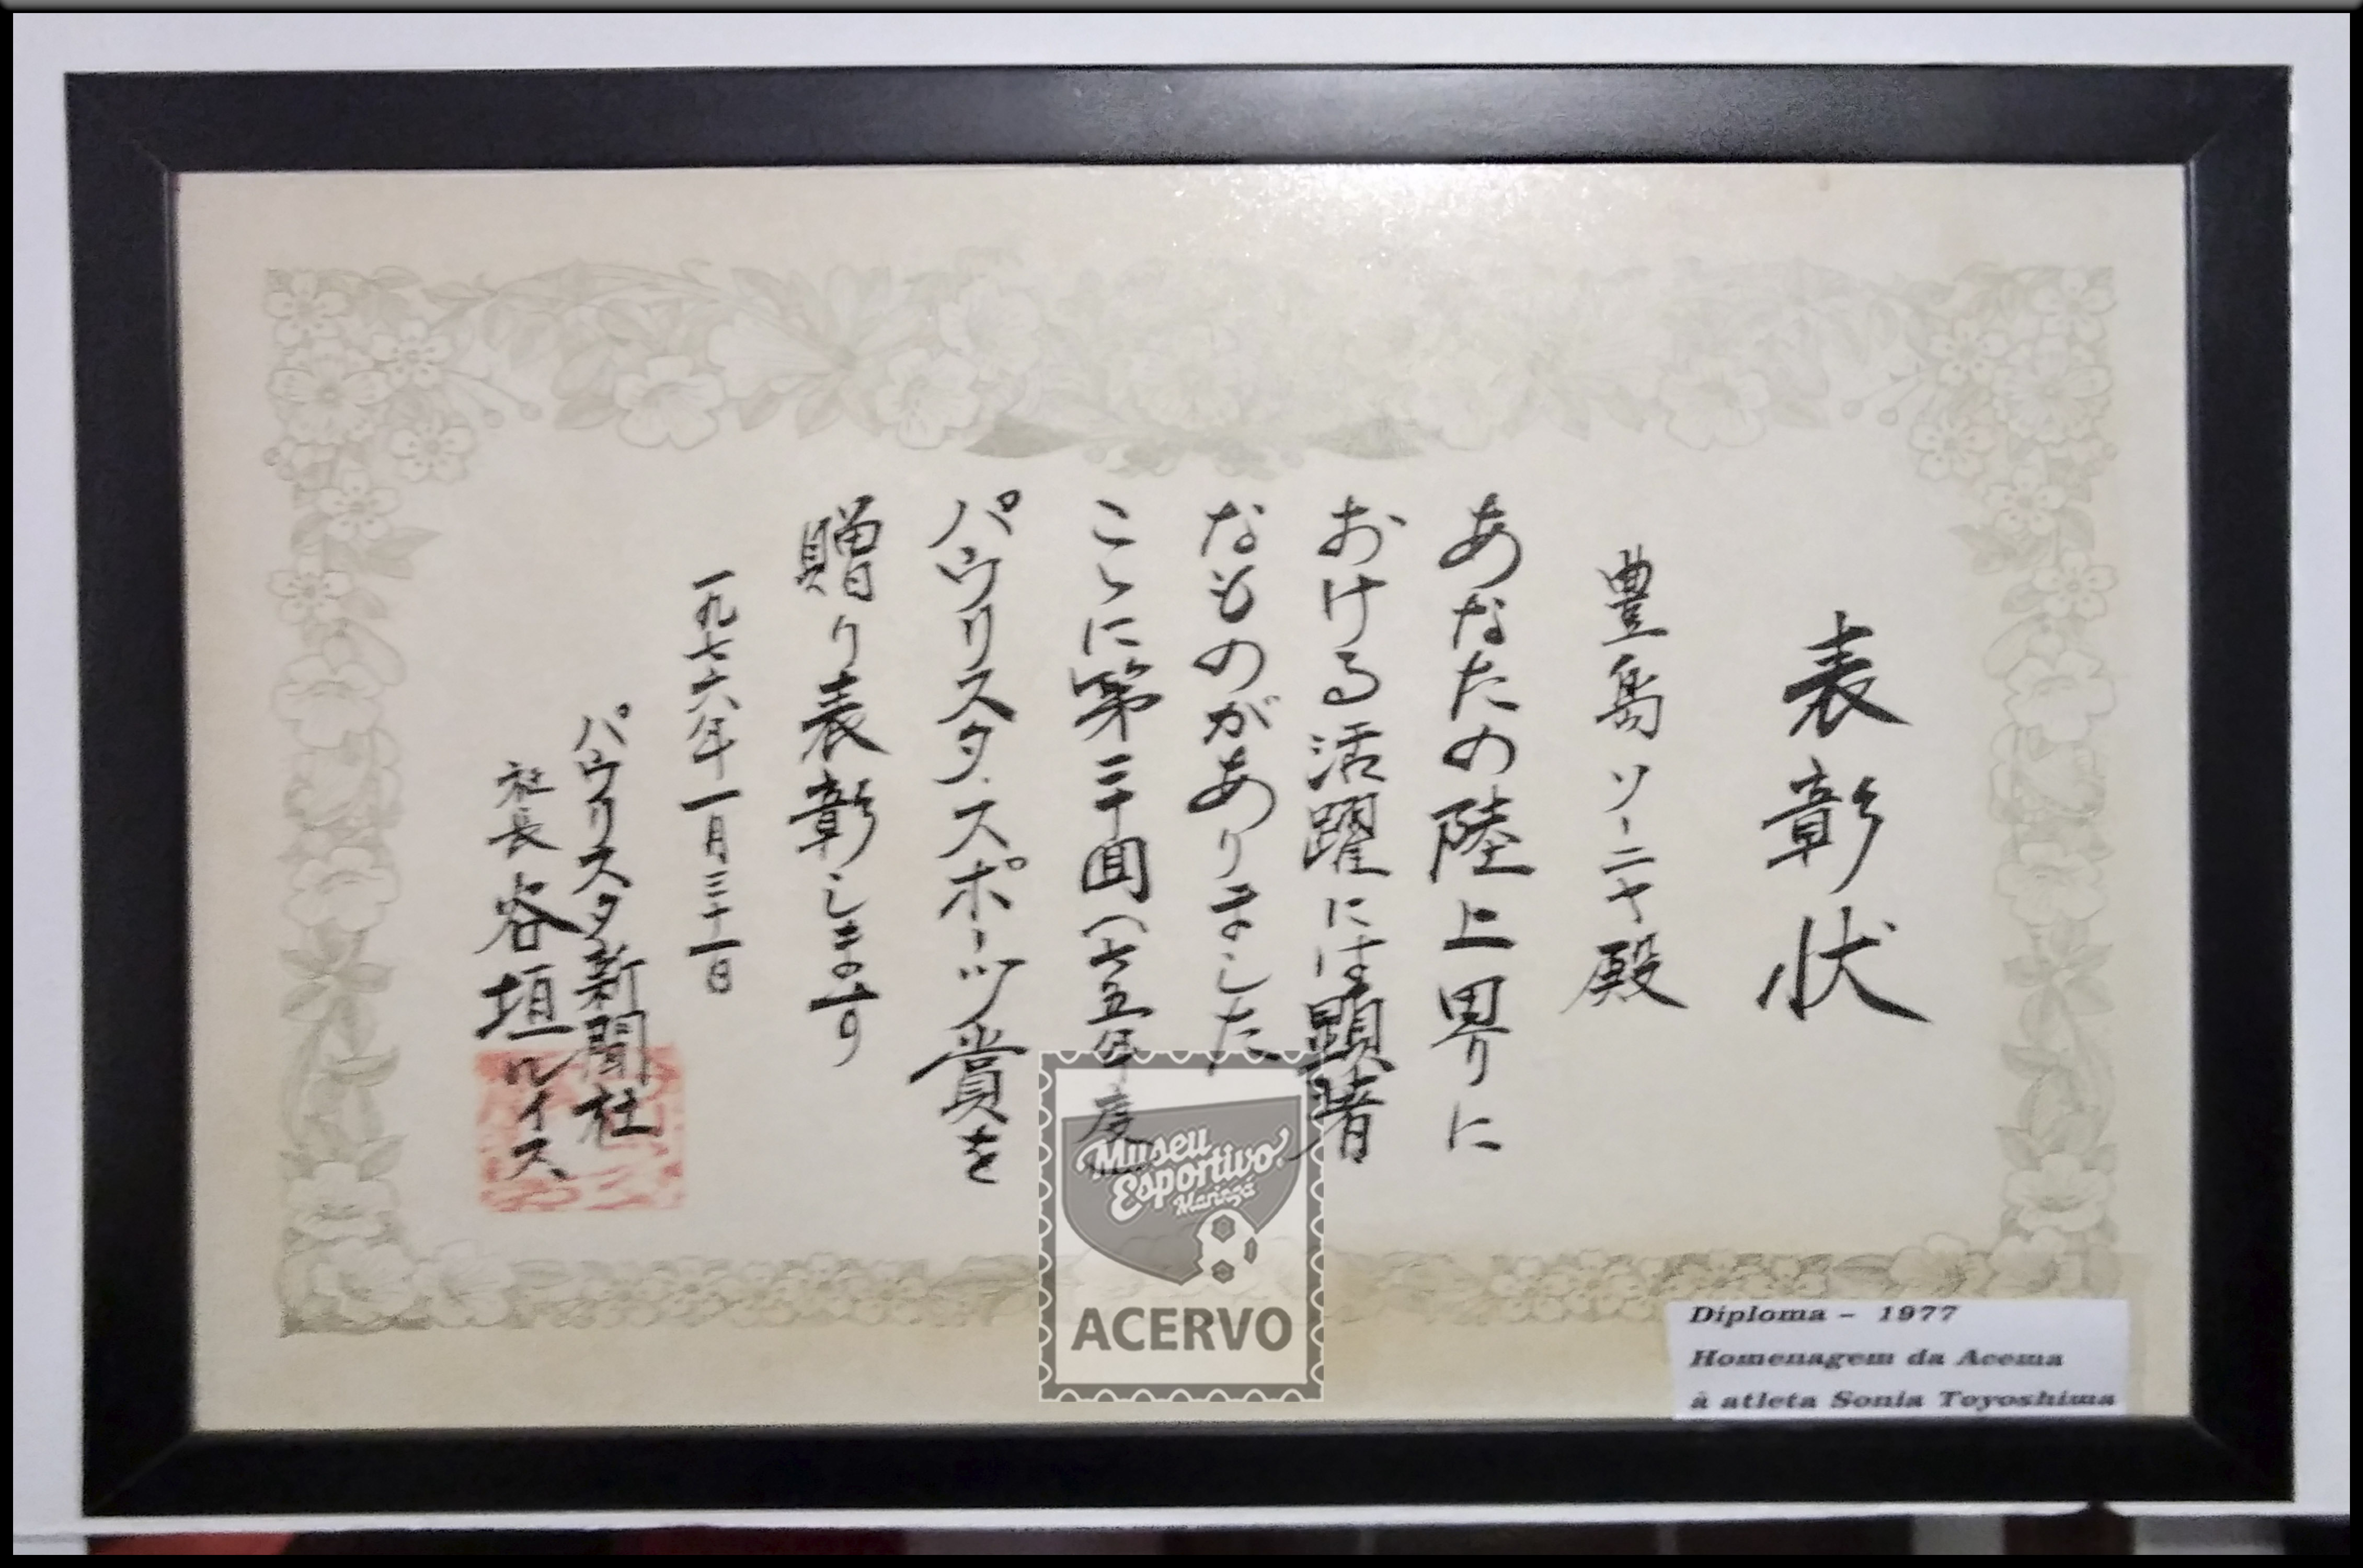 表彰状
豊島ソーニヤ殿
あなたの陸上界りに
おける活躍には顕著
なものがありました
こゝに第二十回(七五年度
パウリスタ・スポーツ賞を
贈り表彰します
一九七六年一月三十一日
パウリスタ新聞社
社長 谷垣ルイス
Museu
Esportivo
Maringá
ACERVO
Diploma - 1977
Homenagem da Acema
à atleta Sonia Toyoshima